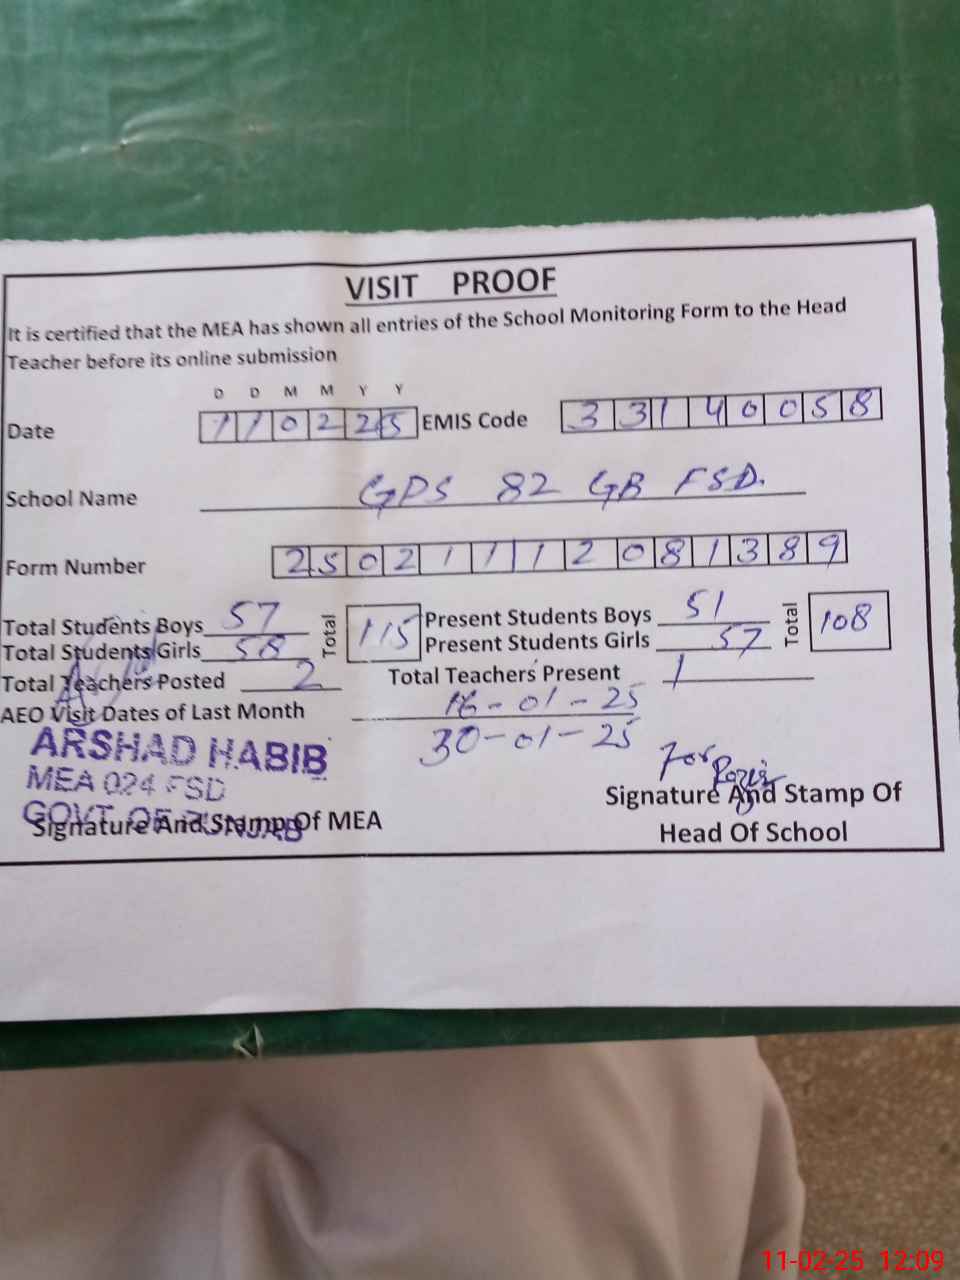 VISIT PROOF
It is certified that the MEA has shown all entries of the School Monitoring Form to the Head
Teacher before its online submission
D D M M Y Y
Date 110225 EMIS Code 33140058
School Name GPS 82 GB FSD.
Form Number 250211112081389
Total Students Boys 57 Total 115 Present Students Boys 51 Total 108
Total Students Girls 58 Present Students Girls 57
Total Teachers Posted 2 Total Teachers Present 1
AEO Visit Dates of Last Month 16-01-25
30-01-25
ARSHAD HABIB
MEA 024 FSD
GOVT OF PUNJAB
For
Signature And Stamp Of MEA
Signature And Stamp Of
Head Of School
11-02-25 12:09